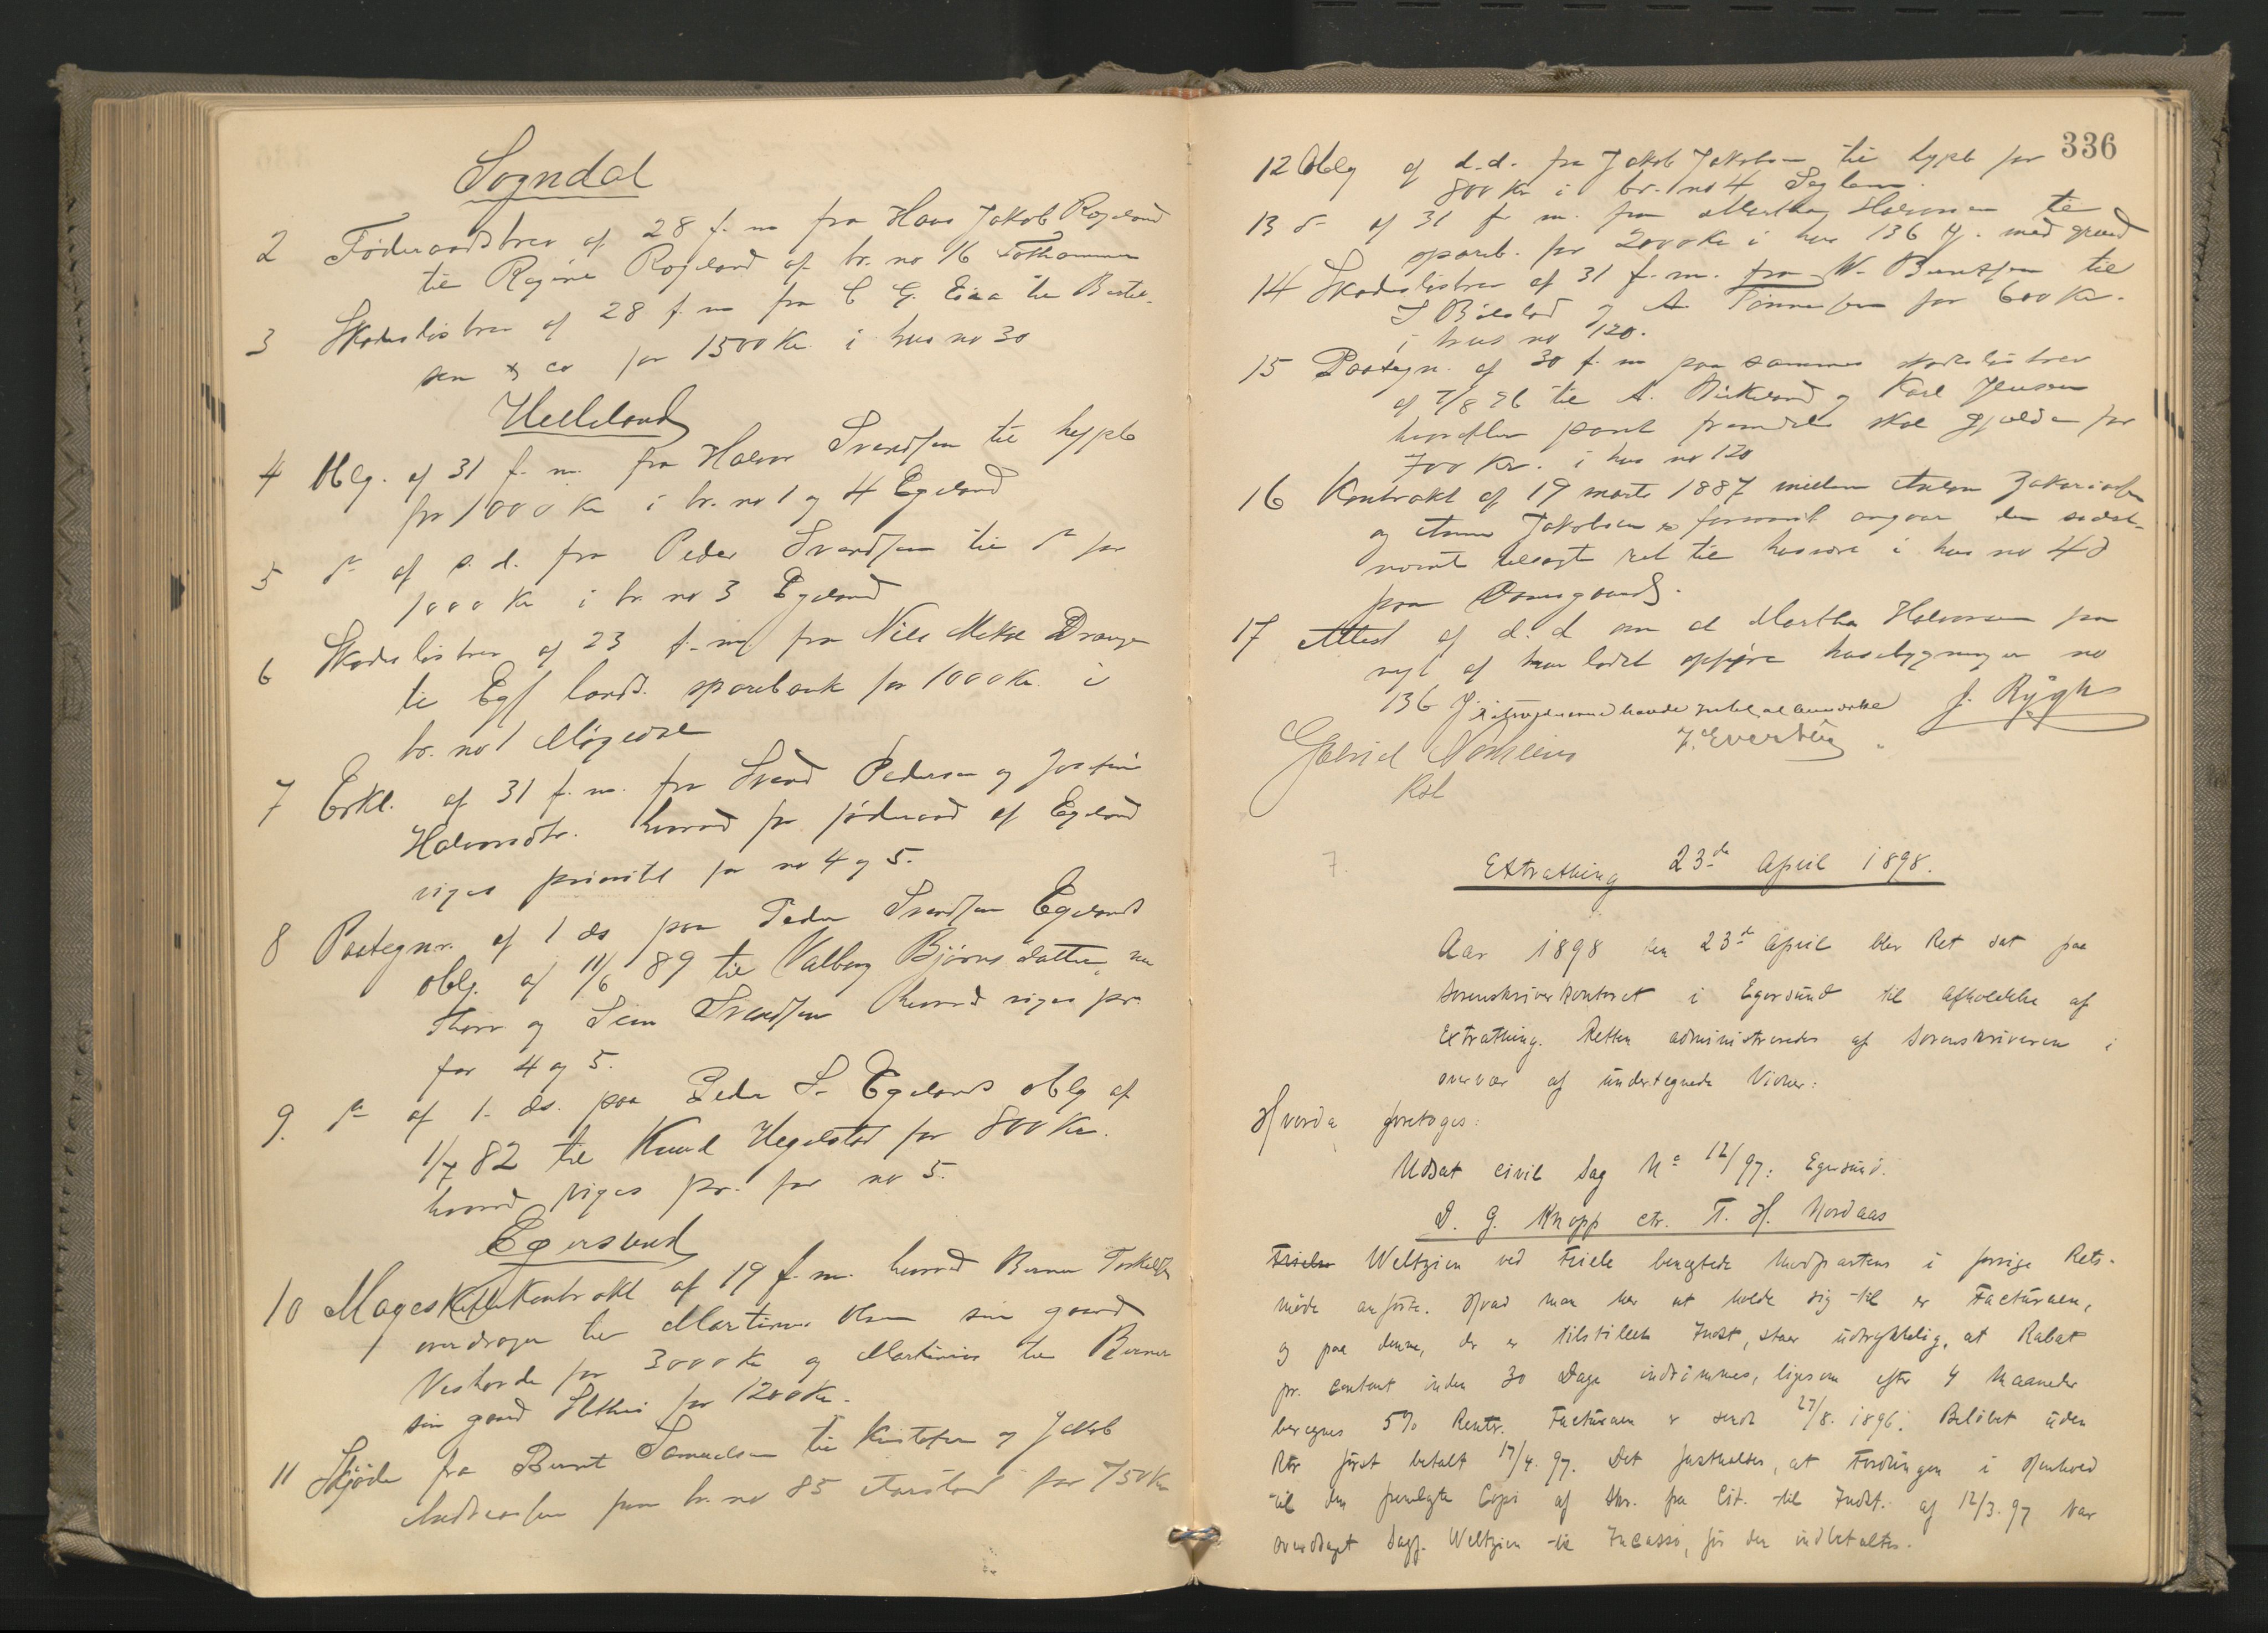 Sogndal
2 Föderaadsbrev af 28 f. m fra Hans Jakob Rægeland
til Regine Rogeland af br. no 16
3 Skadesløsbrev af 28 f. m fra C G. Eia til Bertel-
sen & co for 1500 Kr. i hus no 30
Helleland
4 Oblg. af 31 f. m. fra Halvor Svendsen til hypb
for 1000 Kr i br. no 1 og 4 Egeland
5 do af s. d. fra Peder Svendsen til do for
1000 Kr i br. no 3 Egeland
6 Skadesløsbrev af 23 f. m fra Nils Mikal Drange
til Egs landd. sparebank for 1000 Kr. i
br. no 1
7 Erkl. af 31 f. m. fra Svend Pedersen og Josefine
Halvorsdtr. hvorved for föderaad af Egeland
viges prioritet for no 4 og 5.
8 Paategn. af 1 ds paa Peder Svendsen Egelands
oblg. af 11/6 89 til Valborg Bjørnsdatter, nu
Thore og Siem Svendsen hvorved viges pr.
for 4 og 5.
9. do af 1. ds. paa Peder S. Egelands oblg af
1/7 82 til Knud Hegelstad for 800 Kr.
hvorved viges pr. for no 5.
Egersund
10 Mageskiftekontrakt af 19 f. m. hvorved Berner Torkelsen
overdrager til Martinius Olsen sin gaard
for 3000 Kr og Martinius til Berner
sin gaard for 1200 Kr.
11 Skjöde fra Bernt Samuelsen til Kristofer og Jakob
Andreassen paa br. no 85 Aarstad for 750 Kr
336
12 Oblg af d. d. fra Jakob Jakobsen til hypb for
800 Kr i br. no 4
13 do af 31 f. m. fra Martha Halvorsen til
spareb. for 2000 Kr i hus 136 H. med grund
14 Skadesløsbrev af 31 f. m. fra W. Berentsen til
S og A. Tønnessen for 600 Kr.
i hus no 120.
15 Paategn. af 30 f. m paa sammes skadesløsbrev
af 7/8 96 til A. Birkeland og Karl Jensen
hvorefter pant fremdeles skal gjælde for
700 Kr. i hus no 120
16 Kontrakt af 19 marts 1887 mellem Zakariasen
og Anna Jakobsen forsaavidt angaar den sidst-
nævnte tilsagte ret til husvære i hus no 48
paa
17 Attest af d. d om at Martha Halvorsen paa
nyt af har ladet opføre husebygningen no
136 J. J. Rygh
Gabriel
J. Evertsen
Kbl
7.
Extrathing 23de April 1898.
Aar 1898 den 23de April blev Ret sat paa
Sorenskriverkontoret i Egersund til Afholdelse af
Extrathing. Retten administreredes af Sorenskriveren i
overvær af undertegnede Vidner:
Hvorda foretoges:
Udsat civil Sag No 12/97: Egersund.
D. G. Knopp ctr. T. H. Nordaas
Feiele Weltzien ved Feiele benegtede Modpartens i forrige Rets-
møde anførte. Hvad man her at holde sig til er Facturaen,
og paa denne, der er tilstillet Indst, staar udtrykkelig, at Rabat
pr. contant inden 30 Dage indrømmes, ligesom efter 4 Maaneder
beregnes 5% Renter. Facturaen er sendt 27/8. 1896. Beløbet uden
Rtr først betalt 17/4. 97. Det fastholdes, at Fordringen i Henhold
til den fremlagte Copi af Skr. fra Cit. til Indst. af 12/3. 97 var
overdraget Sagf. Weltzien til Incasso, før den indbetaltes.